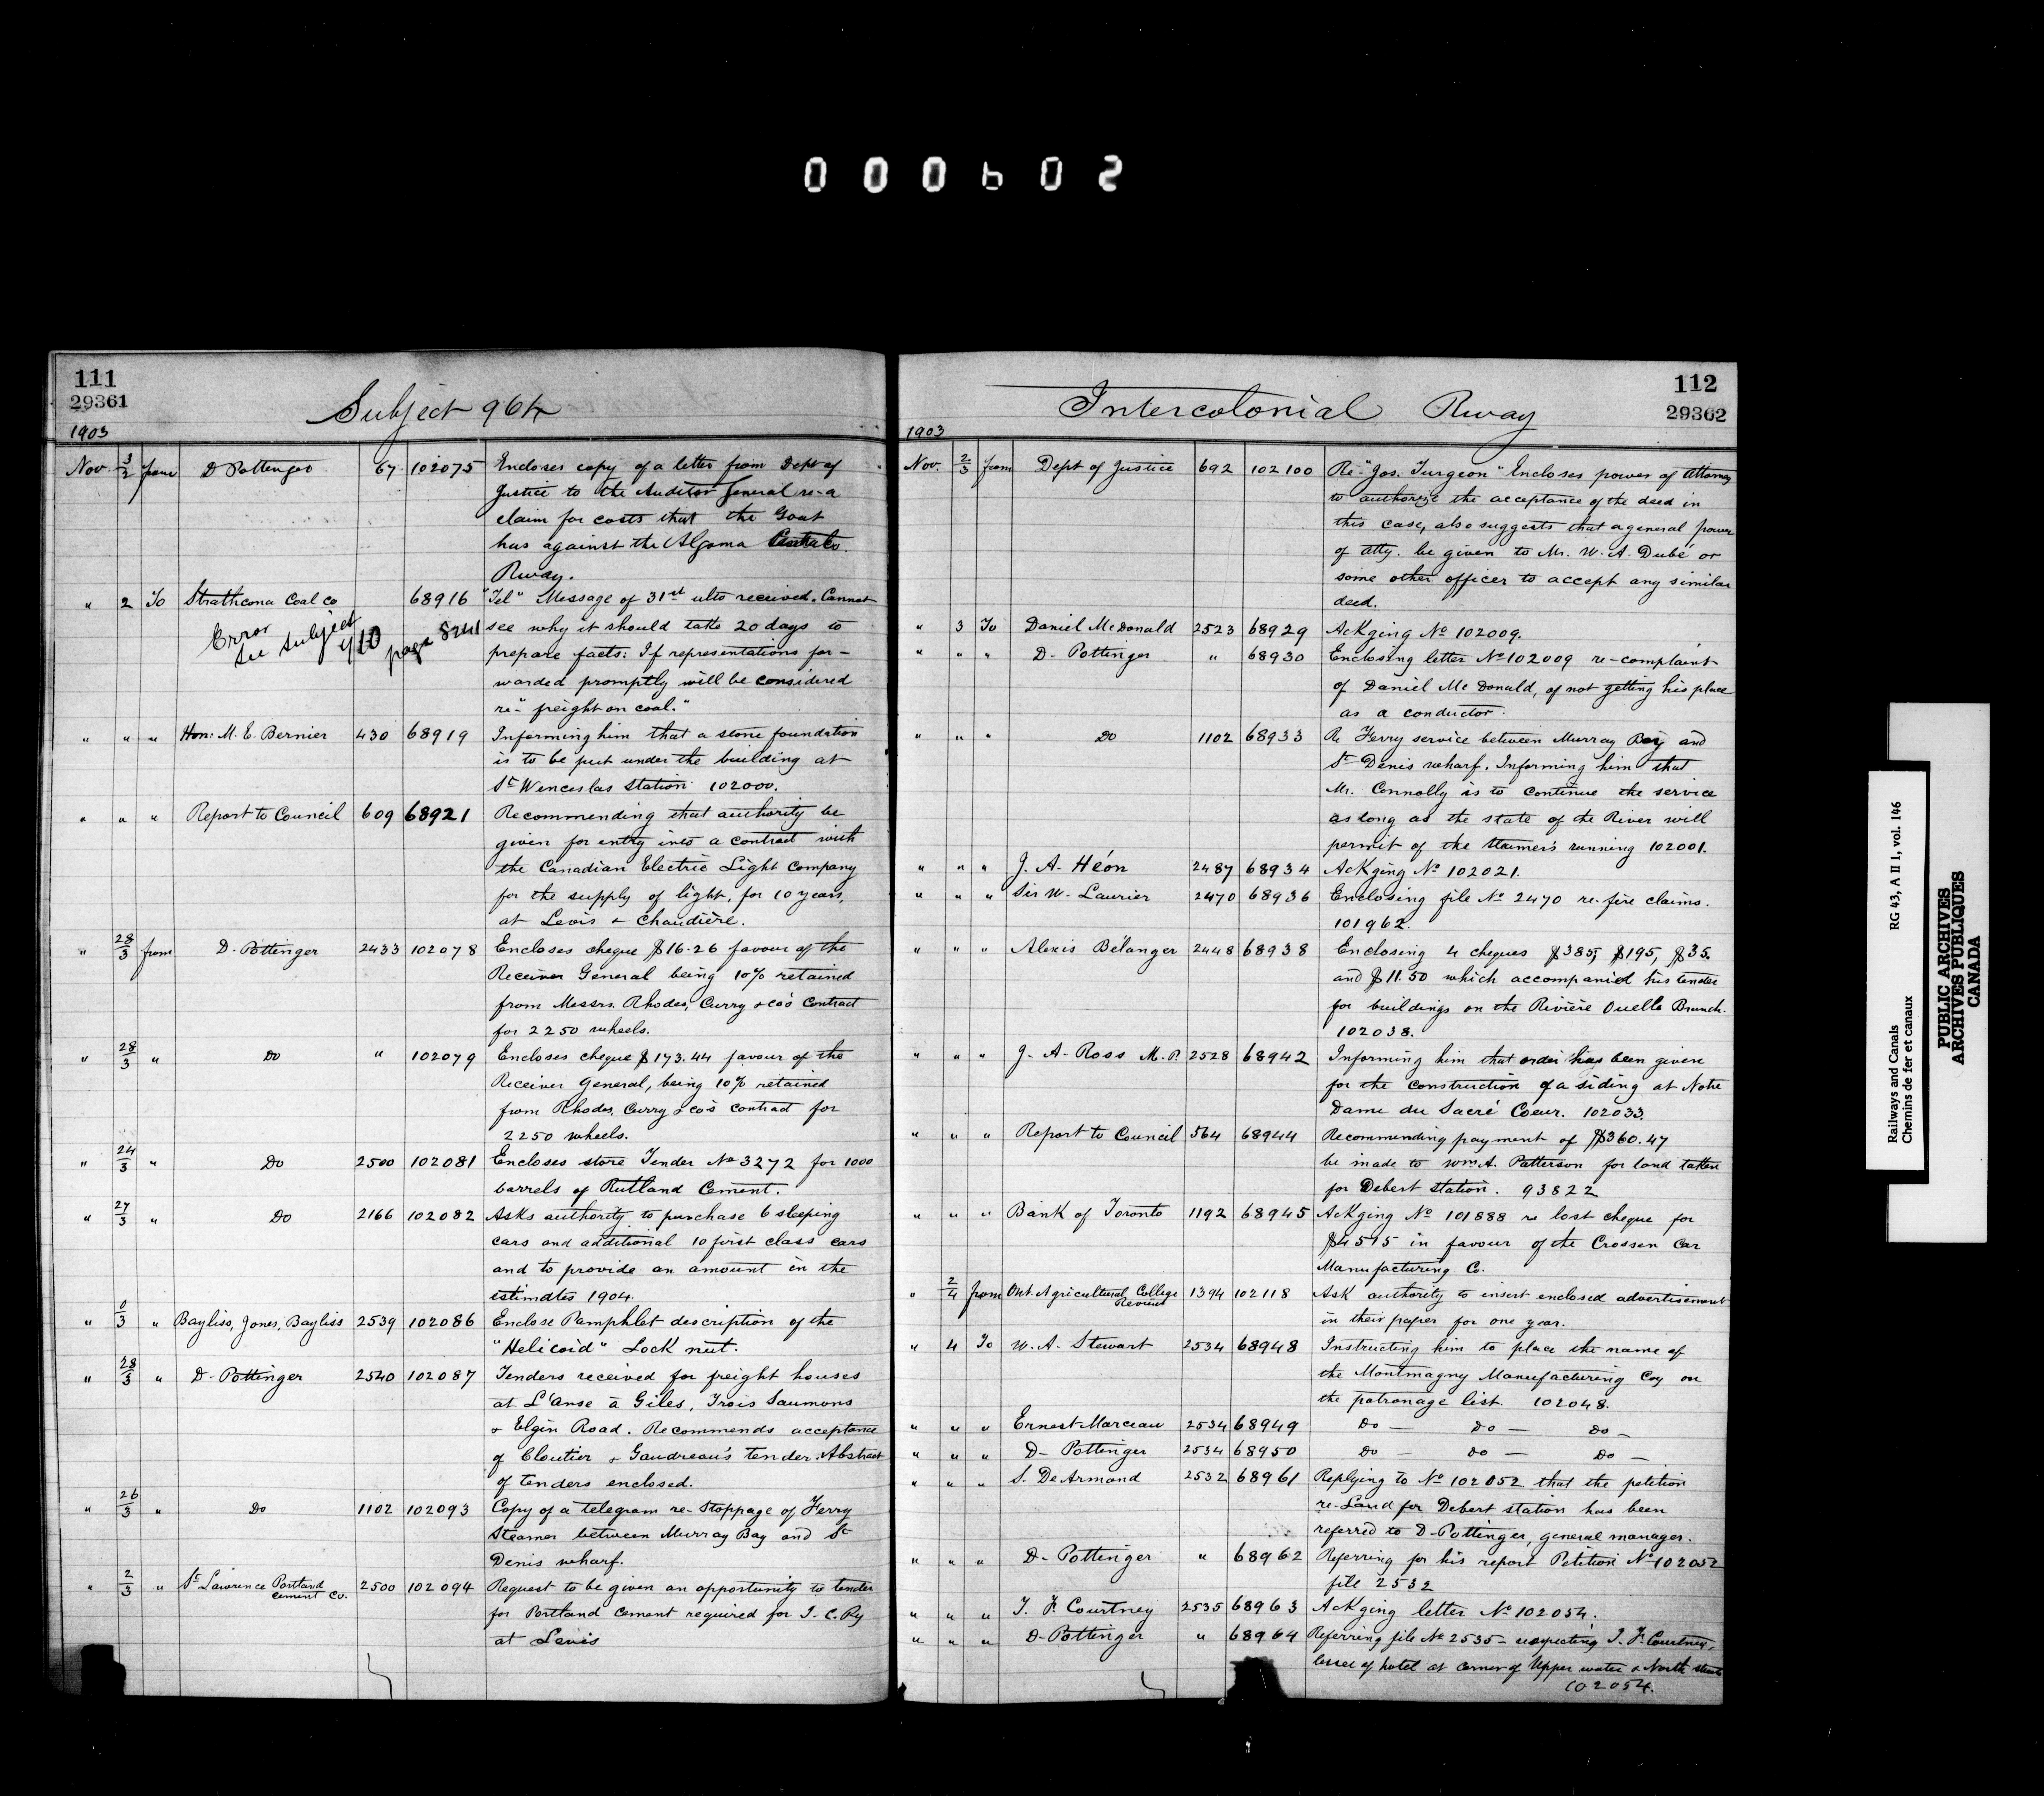 000602
111
29361
Subject 964
1903
Nov. 3/2 from D Pottinger 67 102075 Encloses copy of a letter from Dept of
Justice to the Auditor General re-a
claim for costs that the Govt
has against the Algoma Central
Rway.
" 2 To Strathcona Coal Co 68916 "Tel" Message of 31st ulto received. Cannot
Error
see subject
page 8241
see why it should take 20 days to
prepare facts: If representations for-
warded promptly will be considered
re-"freight on coal."
" " " Hon: M. E. Bernier 430 68919 Informing him that a stone foundation
is to be put under the building at
St Wenceslas Station 102000.
" " " Report to Council 609 68921 Recommending that authority be
given for entry into a contract with
the Canadian Electric Light Company
for the supply of light, for 10 years,
at Levis & Chaudière.
" 28/3 from D. Pottinger 2433 102078 Encloses cheque $16.26 favour of the
Receiver General being 10% retained
from Messrs. Rhodes, Curry & Co's Contract
for 2250 wheels.
" 28/3 " Do " 102079 Encloses cheque $173.44 favour of the
Receiver General, being 10% retained
from Rhodes, Curry & Co's contract for
2250 wheels.
" 24/3 " Do 2500 102081 Encloses store Tender No 3272 for 1000
barrels of Rutland Cement.
" 27/3 " Do 2166 102082 Asks authority to purchase 6 sleeping
cars and additional 10 first class cars
and to provide an amount in the
estimates 1904.
" 0/3 " Bayliss, Jones, Bayliss 2539 102086 Enclose Pamphlet description of the
"Helicoid" Lock nut.
" 28/3 " D. Pottinger 2540 102087 Tenders received for freight houses
at L'Anse à Giles, Trois Saumons
& Elgin Road. Recommends acceptance
of Cloutier & Gaudreau's tender. Abstract
of tenders enclosed.
" 26/3 " Do 1102 102093 Copy of a telegram re-Stoppage of Ferry
Steamer between Murray Bay and St
Denis wharf.
" 2/3 " St Lawrence Portland Cement Co. 2500 102094 Request to be given an opportunity to tender
for Portland Cement required for I. C. Ry
at Levis
112
29362
Intercolonial Rway
1903
Nov. 2/3 from Dept of Justice 692 102100 Re-"Jos. Turgeon" Encloses power of attorney
to authorize the acceptance of the deed in
this case, also suggests that a general power
of atty. be given to Mr. W. A. Dubé or
some other officer to accept any similar
deed.
" 3 To Daniel McDonald 2523 68929 Ackging No 102009.
" " " D. Pottinger " 68930 Enclosing letter No 102009 re-complaint
of Daniel McDonald, of not getting his place
as a conductor.
" " " Do 1102 68933 Re Ferry service between Murray Bay and
St Denis wharf. Informing him that
Mr. Connolly is to continue the service
as long as the state of the River will
permit of the steamers running 102001.
" " " J. A. Héon 2487 68934 Ackging No 102021.
" " " Sir W. Laurier 2470 68936 Enclosing file No 2470 re-fire claims.
101962.
" " " Alexis Bélanger 2448 68938 Enclosing 4 cheques $385, $195, $35.
and $11.50 which accompanied his tender
for buildings on the Rivière Ouelle Branch.
102038.
" " " J. A. Ross M.P. 2528 68942 Informing him that order has been given
for the construction of a siding at Notre
Dame du Sacré Coeur. 102033.
" " " Report to Council 564 68944 Recommending payment of $360.47
be made to Wm A. Patterson for land taken
for Debert station. 93822
" " " Bank of Toronto 1192 68945 Ackging No 101888 re lost cheque for
$4515 in favour of the Crossen Car
Manufacturing Co.
" 2/4 from Ont. Agricultural College Review 1394 102118 Ask authority to insert enclosed advertisement
in their paper for one year.
" 4 To W. A. Stewart 2534 68948 Instructing him to place the name of
the Montmagny Manufacturing Coy on
the patronage list. 102048.
" " " Ernest Marceau 2534 68949 Do — Do — Do —
" " " D- Pottinger 2534 68950 Do — Do — Do —
" " " S. De Armond 2532 68961 Replying to No 102052 that the petition
re-Land for Debert station has been
referred to D-Pottinger, general manager.
" " " D- Pottinger " 68962 Referring for his report Petition No 102052
file 2532
" " " T. F. Courtney 2535 68963 Ackging letter No 102054.
" " " D-Pottinger " 68964 Referring file No 2535- respecting T. F. Courtney,
lessee of hotel at corner of Upper water & North streets
102054.
Railways and Canals RG 43, A II 1, vol. 146
Chemins de fer et canaux
PUBLIC ARCHIVES
ARCHIVES PUBLIQUES
CANADA